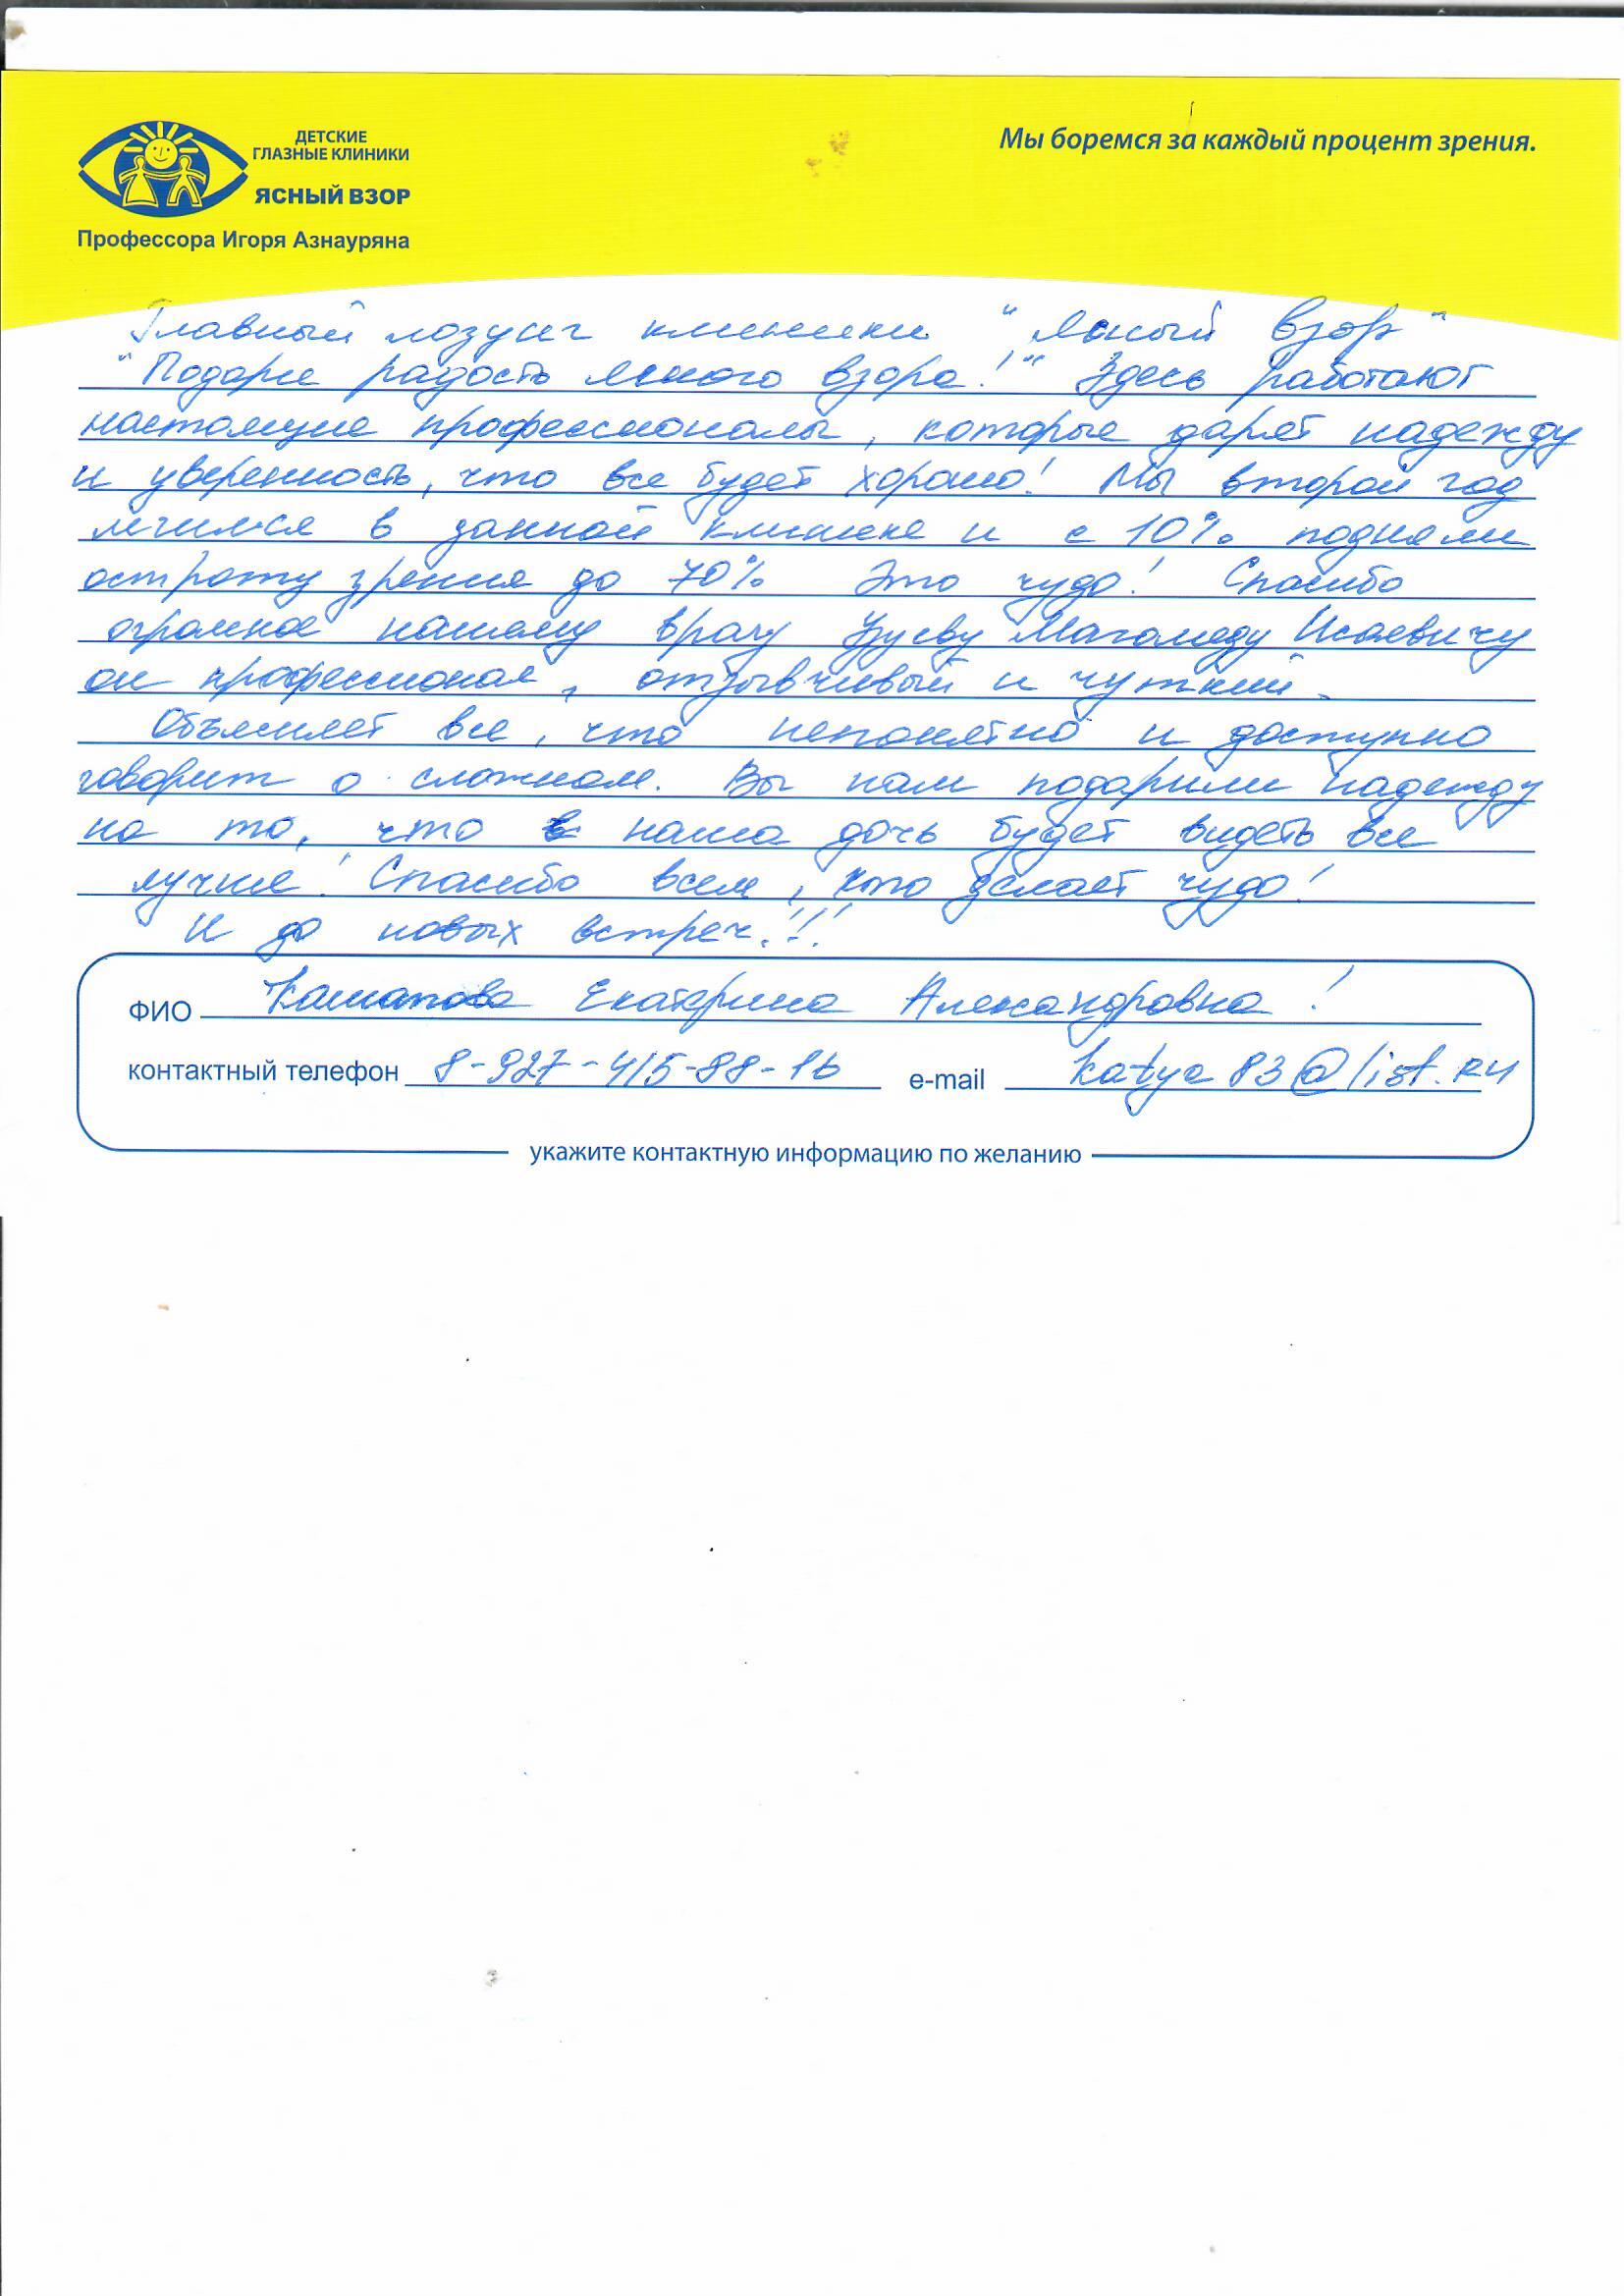 ДЕТСКИЕ
ГЛАЗНЫЕ КЛИНИКИ
ЯСНЫЙ ВЗОР
Профессора Игоря Азнауряна
Мы боремся за каждый процент зрения.
Главный лозунг клиники "Ясный Взор"
"Подари радость ясного взора!" Здесь работают
настоящие профессионалы, которые дарят надежду
и уверенность, что все будет хорошо! Мы второй год
лечимся в данной клинике и с 10% подняли
остроту зрения до 70% Это чудо! Спасибо
огромное нашему врачу Магомеду Исаевичу
он профессионал, отзывчивый и чуткий.
Объясняет все, что непонятно и доступно
говорит о сложном. Вы нам подарили надежду
на то, что наша дочь будет видеть все
лучше! Спасибо всем, кто делает чудо!
И до новых встреч!!!
ФИО Екатерина Александровна!
контактный телефон 8-927-415-88-16 e-mail katya83@list.ru
укажите контактную информацию по желанию